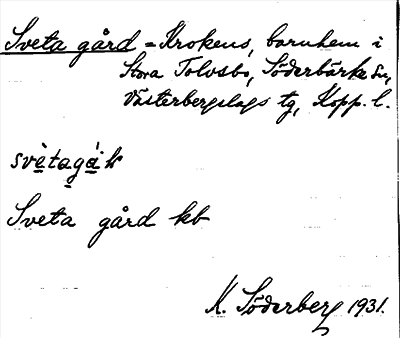 Sveta gård = Krokens, barnhem i
Stora Tolvsbo, Söderbärke sn,
Västerbergslags tg, Kopp. l.
Sveta gård kb
K. Söderberg 1931.